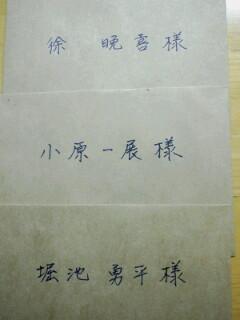 徐 晩喜様
小原一展様
堀池 勇平様